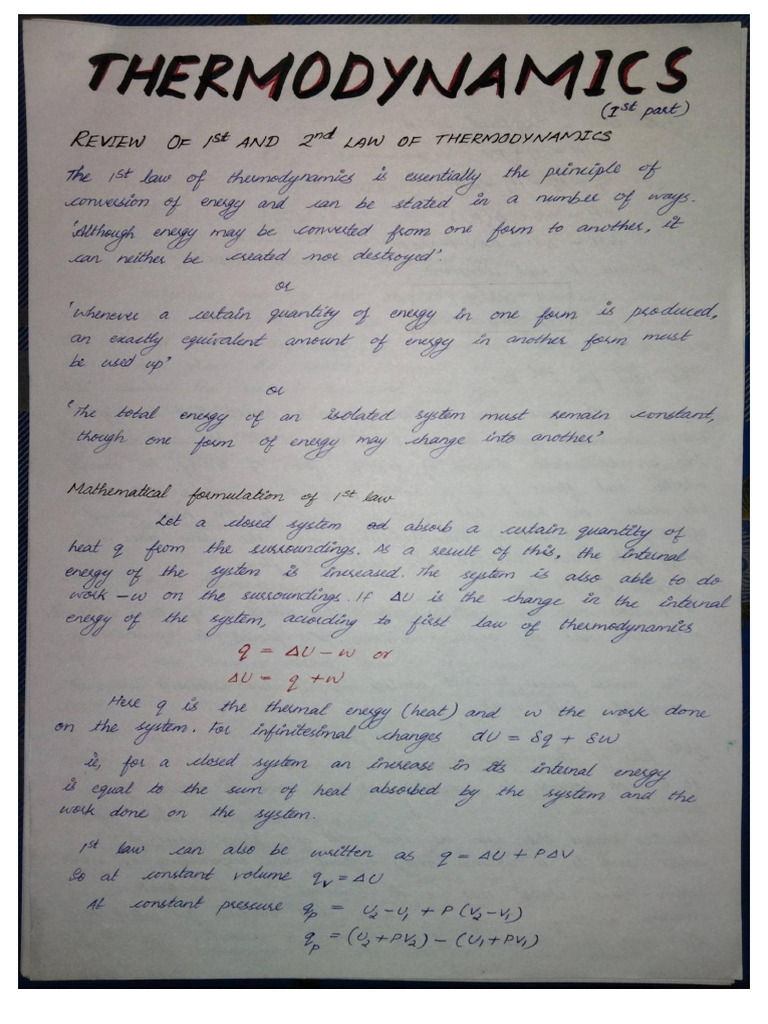 THERMODYNAMICS
(Ist part)
REVIEW OF 1st AND 2nd LAW OF THERMODYNAMICS
The 1st law of thermodynamics is essentially the principle of
conversion of energy and can be stated in a number of ways.
'Although energy may be converted from one form to another, it
can neither be created nor destroyed'.
or
'Whenever a certain quantity of energy in one form is produced,
an exactly equivalent amount of energy in another form must
be used up'
or
'The total energy of an isolated system must remain constant,
though one form of energy may change into another'
Mathematical formulation of 1st law
Let a closed system absorb a certain quantity of
heat q from the surroundings. As a result of this, the internal
energy of the system is increased. The system is also able to do
work -w on the surroundings. If ΔU is the change in the internal
energy of the system, according to first law of thermodynamics
q = ΔU - w or
ΔU = q + w
Here q is the thermal energy (heat) and w the work done
on the system. For infinitesimal changes dU = δq + δw
ie, for a closed system an increase in its internal energy
is equal to the sum of heat absorbed by the system and the
work done on the system.
1st law can also be written as q = ΔU + PΔV
So at constant volume qv = ΔU
At constant pressure qp = U2 - U1 + P(V2 - V1)
qp = (U2 + PV2) - (U1 + PV1)